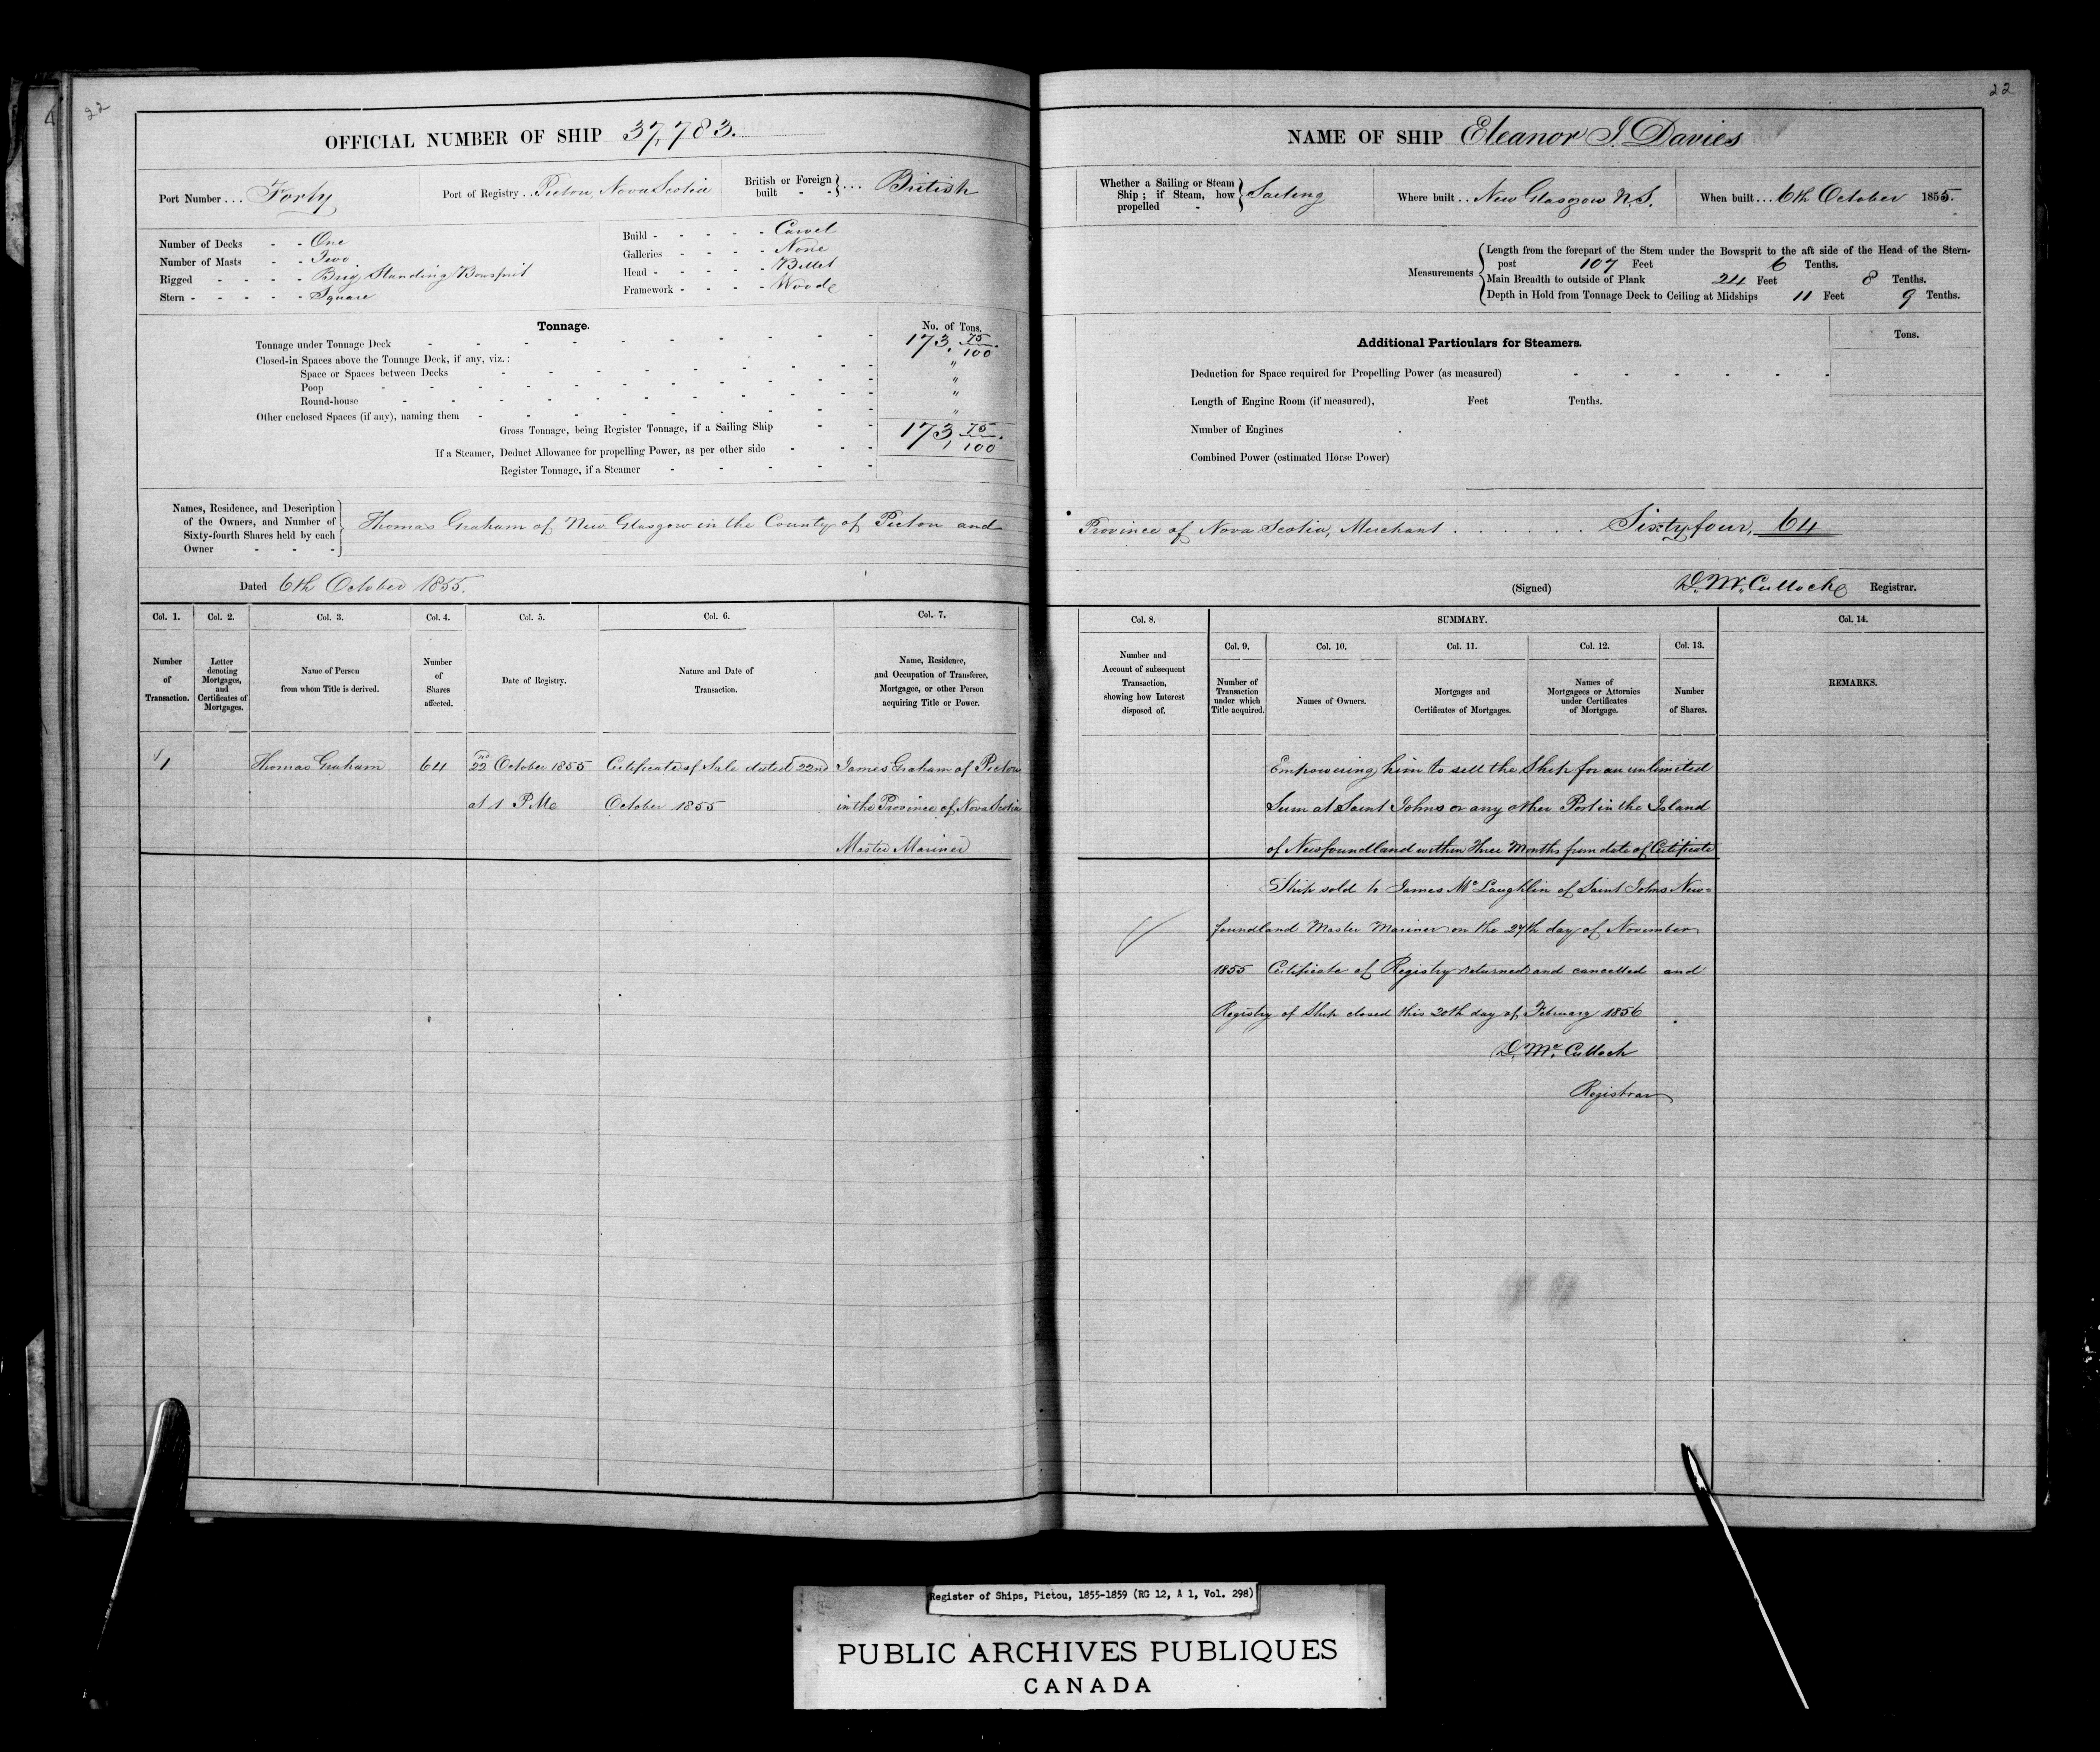 22
OFFICIAL NUMBER OF SHIP 37,783.
Port Number... Forty
Port of Registry.. Pictou, Nova Scotia
British or Foreign built - - }... British
Number of Decks - - One
Number of Masts - - Two
Rigged - - - - - Brig Standing Bowsprit
Stern - - - - - Square
Build - - - - - Carvel
Galleries - - - - None
Head - - - - - Billet
Framework - - - - Wood
Tonnage.
No. of Tons.
Tonnage under Tonnage Deck 173, 75/100.
Closed-in Spaces above the Tonnage Deck, if any, viz.:
Space or Spaces between Decks "
Poop "
Round-house "
Other enclosed Spaces (if any), naming them "
Gross Tonnage, being Register Tonnage, if a Sailing Ship 173, 75/100.
If a Steamer, Deduct Allowance for propelling Power, as per other side
Register Tonnage, if a Steamer
Names, Residence, and Description
of the Owners, and Number of
Sixty-fourth Shares held by each
Owner - - -
Thomas Graham of New Glasgow in the County of Pictou and
Dated 6th October 1855.
Col. 1. Col. 2. Col. 3. Col. 4. Col. 5. Col. 6. Col. 7.
Number of Transaction.
Letter denoting Mortgages, and Certificates of Mortgages.
Name of Person from whom Title is derived.
Number of Shares affected.
Date of Registry.
Nature and Date of Transaction.
Name, Residence, and Occupation of Transferee, Mortgagee, or other Person acquiring Title or Power.
1 Thomas Graham 64 22nd October 1855 Certificate of Sale dated 22nd James Graham of Pictou
at 1 P.M. October 1855 in the Province of Nova Scotia
Master Mariner
22
NAME OF SHIP Eleanor J. Davies
Whether a Sailing or Steam Ship; if Steam, how propelled - } Sailing
Where built.. New Glasgow N.S.
When built... 6th October 1855.
Measurements
Length from the forepart of the Stem under the Bowsprit to the aft side of the Head of the Stern-
post 107 Feet 6 Tenths.
Main Breadth to outside of Plank 24 Feet 8 Tenths.
Depth in Hold from Tonnage Deck to Ceiling at Midships 11 Feet 9 Tenths.
Additional Particulars for Steamers.
Tons.
Deduction for Space required for Propelling Power (as measured)
Length of Engine Room (if measured), Feet Tenths.
Number of Engines
Combined Power (estimated Horse Power)
Province of Nova Scotia, Merchant . . . . . . Sixty four, 64
(Signed) D. McCulloch Registrar.
Col. 8. SUMMARY. Col. 14.
Col. 9. Col. 10. Col. 11. Col. 12. Col. 13.
Number and Account of subsequent Transaction, showing how Interest disposed of.
Number of Transaction under which Title acquired.
Names of Owners.
Mortgages and Certificates of Mortgages.
Names of Mortgagees or Attornies under Certificates of Mortgage.
Number of Shares.
REMARKS.
Empowering him to sell the Ship for an unlimited
Sum at Saint Johns or any other Port in the Island
of Newfoundland within three Months from date of Certificate
Ship sold to James McLaughlin of Saint Johns New=
foundland Master Mariner on the 27th day of November
1855 Certificate of Registry returned and cancelled and
Registry of Ship closed this 20th day of February 1856
D. McCulloch
Registrar
Register of Ships, Pictou, 1855-1859 (RG 12, A 1, Vol. 298)
PUBLIC ARCHIVES PUBLIQUES
CANADA